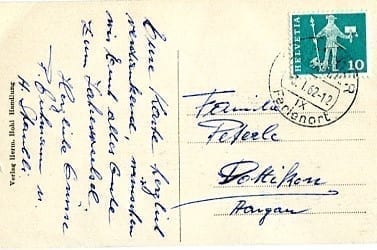 Eure Karte herzlich
verdankend, wünschen
wir Euch alles Gute
zum Jahreswechsel
Herzliche Grüsse
u.
H.
Verlag Herm. Hohl Handlung
HELVETIA
10
1.62-10
IX
Ferienort
Familie
Peterle
Dottikon
Aargau